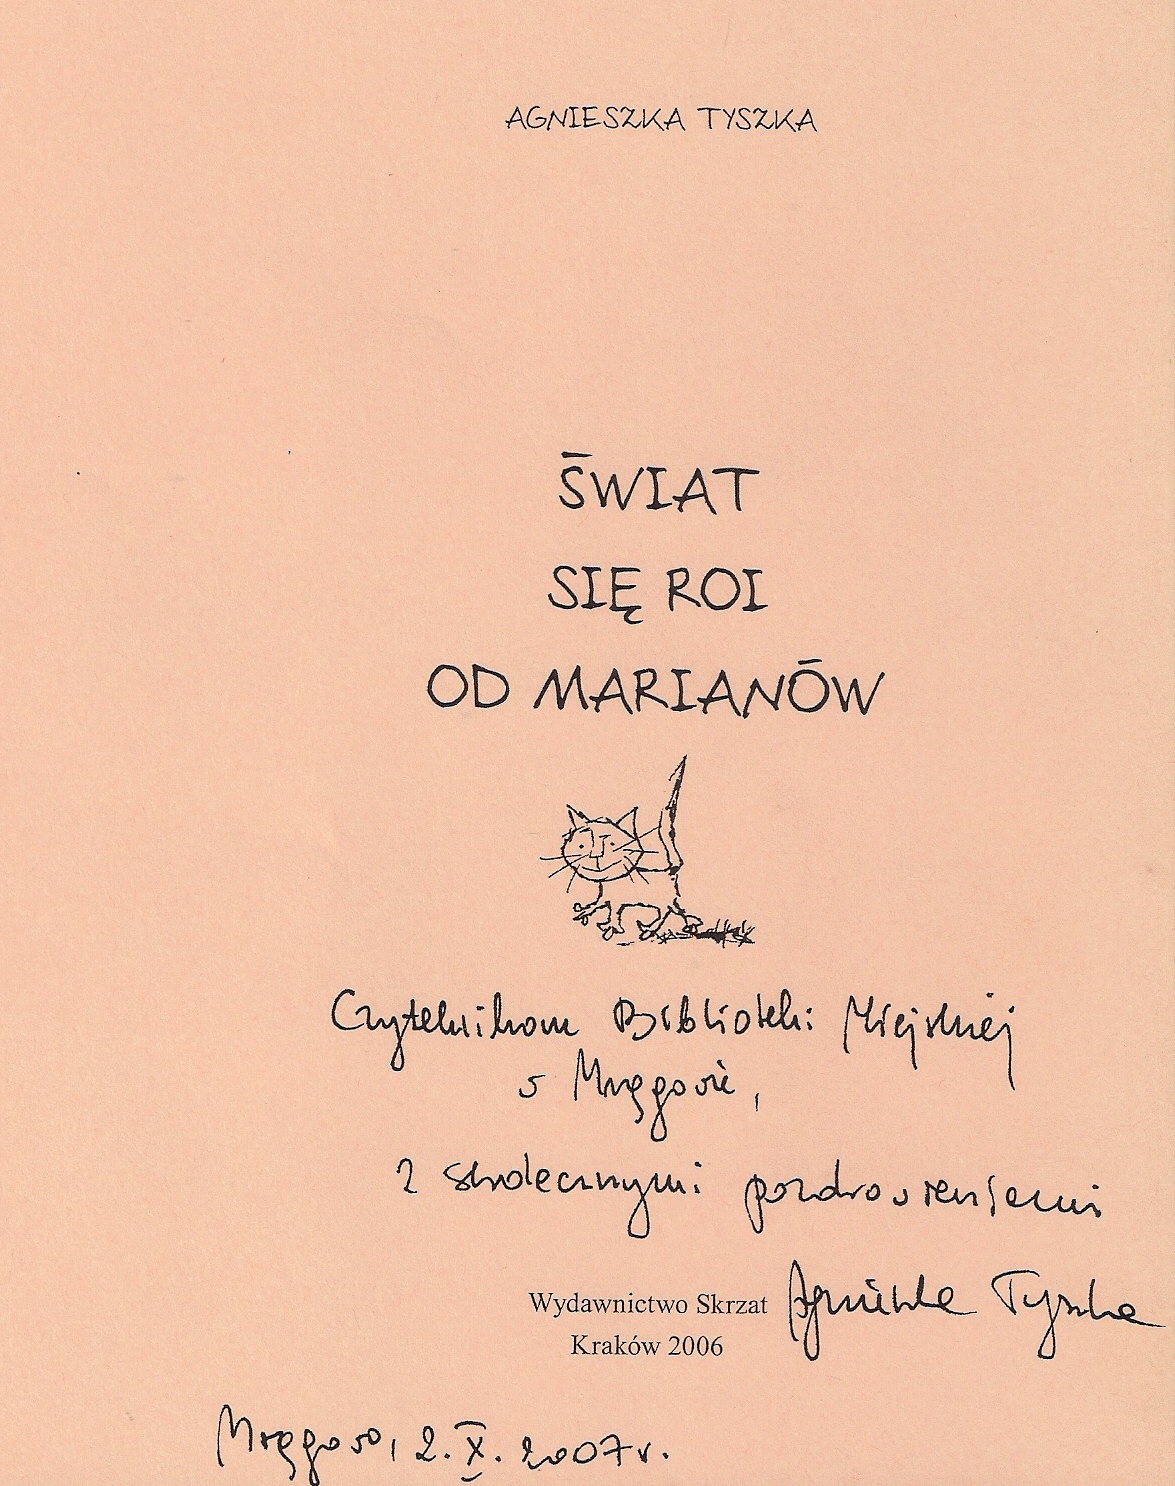 AGNIESZKA TYSZKA
ŚWIAT
SIĘ ROI
OD MARIANÓW
Czytelnikom Biblioteki Miejskiej
w Mrągowie,
z serdecznymi pozdrowieniami
Wydawnictwo Skrzat
Agnieszka Tyszka
Kraków 2006
Mrągowo, 2.X.2007r.